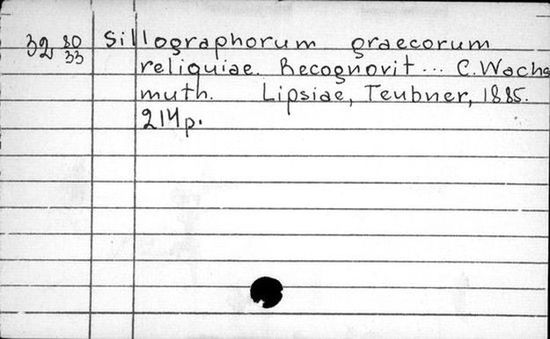 32 80/33 Sillographorum graecorum
reliquiae. Recognovit... C. Wachs
muth. Lipsiae, Teubner, 1885.
214p.